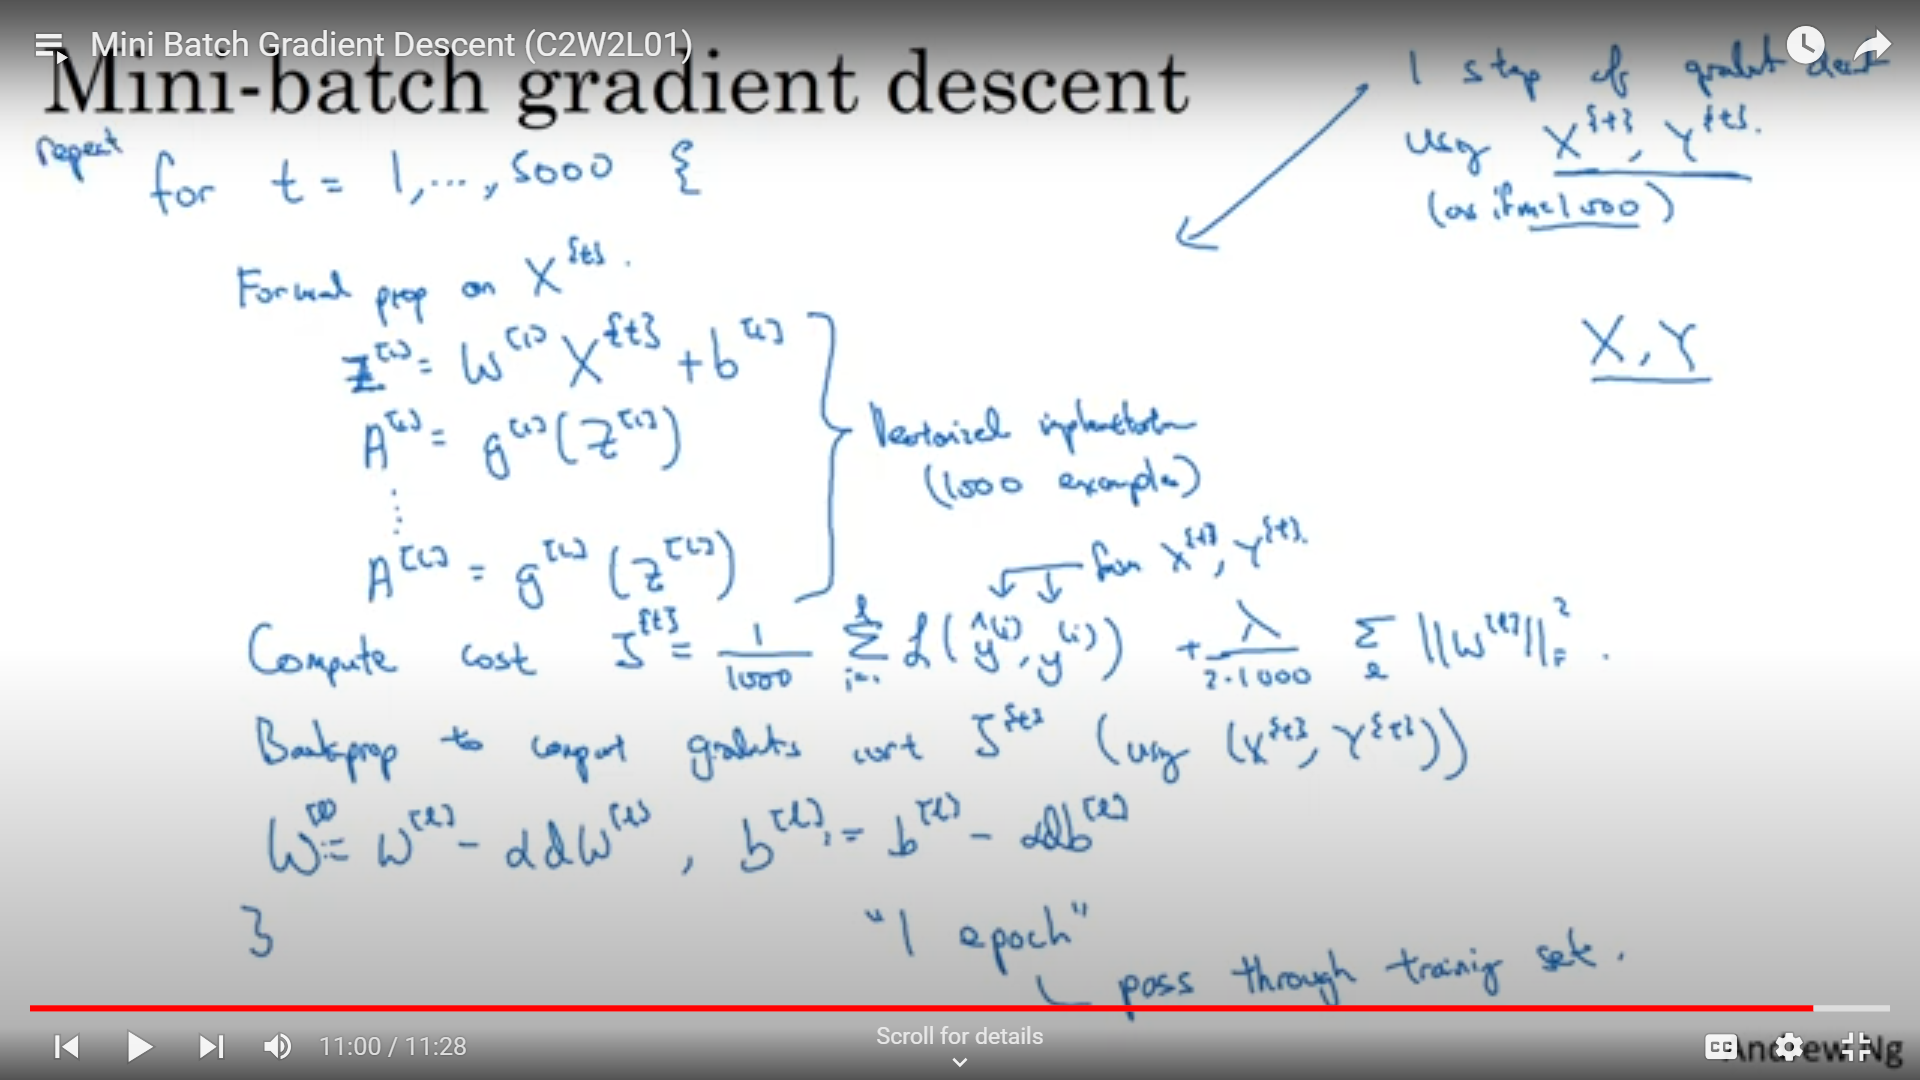 Mini Batch Gradient Descent (C2W2L01)
Mini-batch gradient descent
repeat for t = 1,..., 5000 {
1 step of gradient descent
using X^{t}, Y^{t}.
(as if m=1000)
Forward prop on X^{t}.
X, Y
Z^[1] = W^[1] X^{t} + b^[1]
A^[1] = g^[1](Z^[1])
⋮
A^[L] = g^[L](Z^[L])
Vectorized implementation
(1000 examples)
from X^{t}, Y^{t}.
Compute cost J^{t} = 1/1000 Σ_{i=1}^{l} L(ŷ^(i), y^(i)) + λ/(2·1000) Σ_l ||W^[l]||_F^2.
Backprop to compute gradients wrt J^{t} (using (X^{t}, Y^{t}))
W^[l] := W^[l] - αdW^[l], b^[l] := b^[l] - αdb^[l]
}
"1 epoch"
pass through training set.
11:00 / 11:28
Scroll for details
CC
Andrew Ng